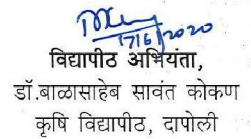 17/6/2020
विद्यापीठ अभियंता,
डॉ.बाळासाहेब सावंत कोकण
कृषि विद्यापीठ, दापोली